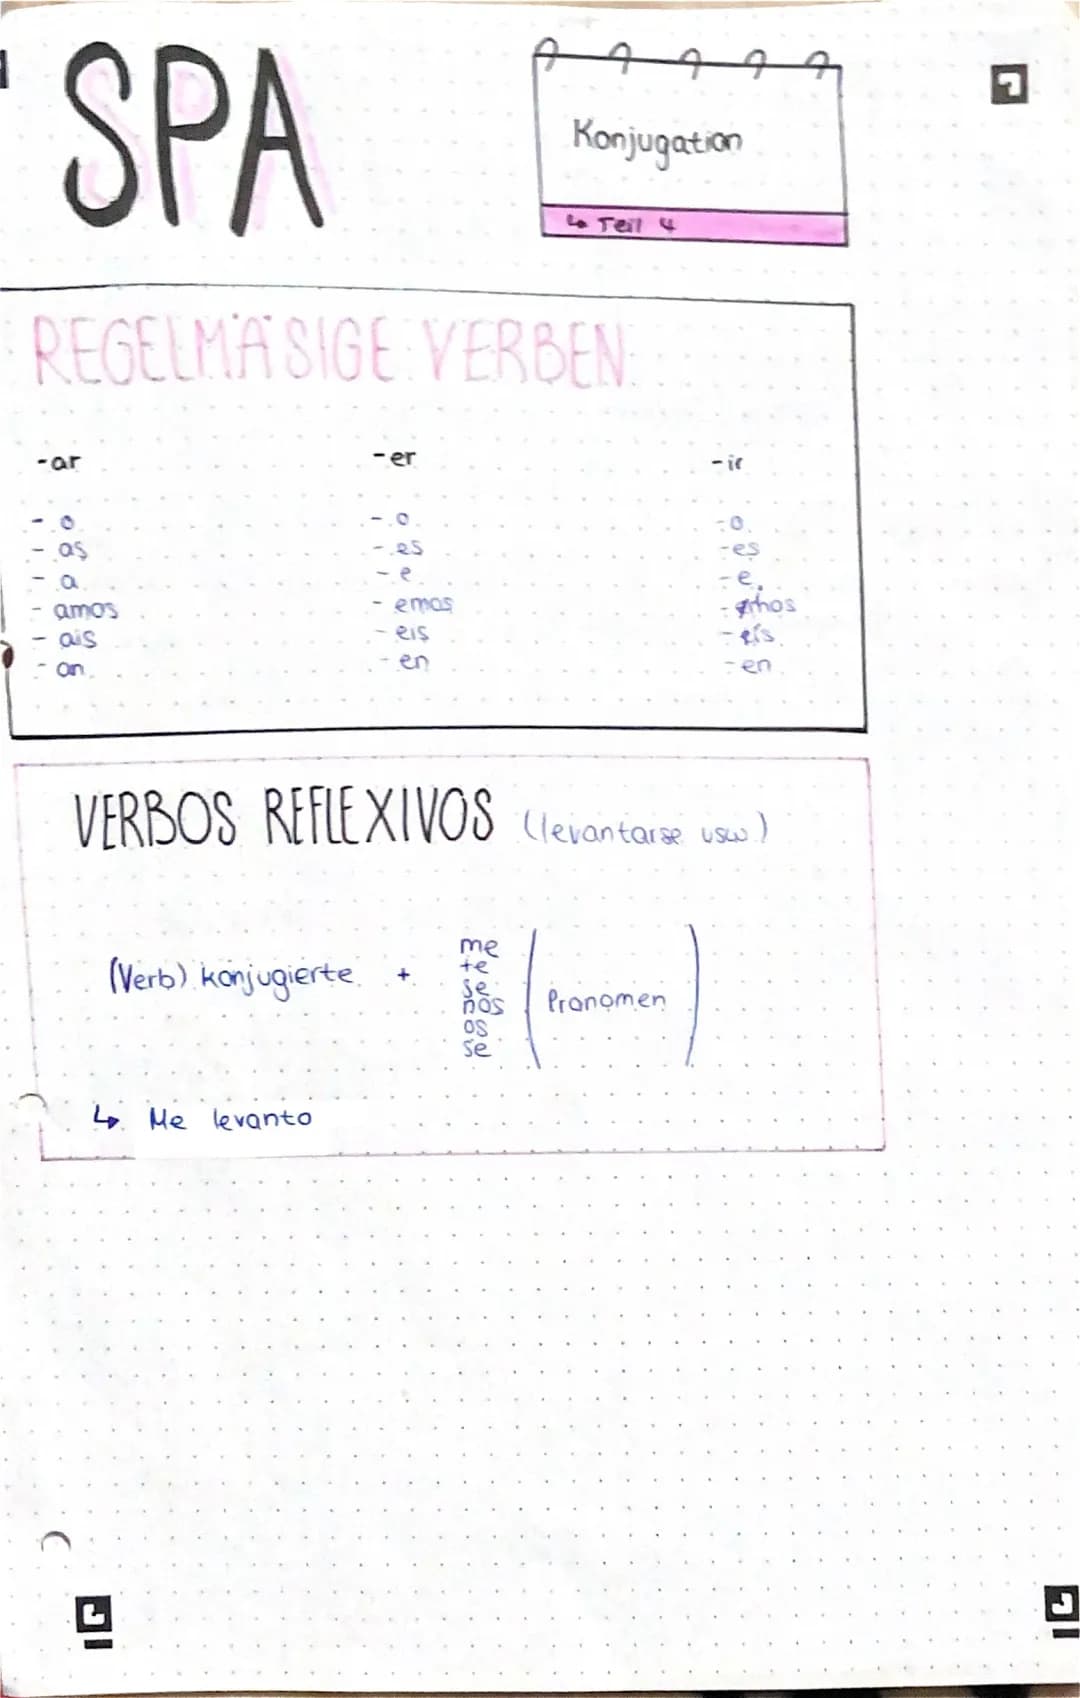 SPA
Konjugation
↳ Teil 4
REGELMÄSIGE VERBEN
-ar -er -ir
- o - o - o
- as - es - es
- a - e - e
- amos - emos
- ais - eis
- an - en - en
VERBOS REFLEXIVOS (levantarse usw.)
(Verb) konjugierte + me te se nos os se (Pronomen)
↳ Me levanto